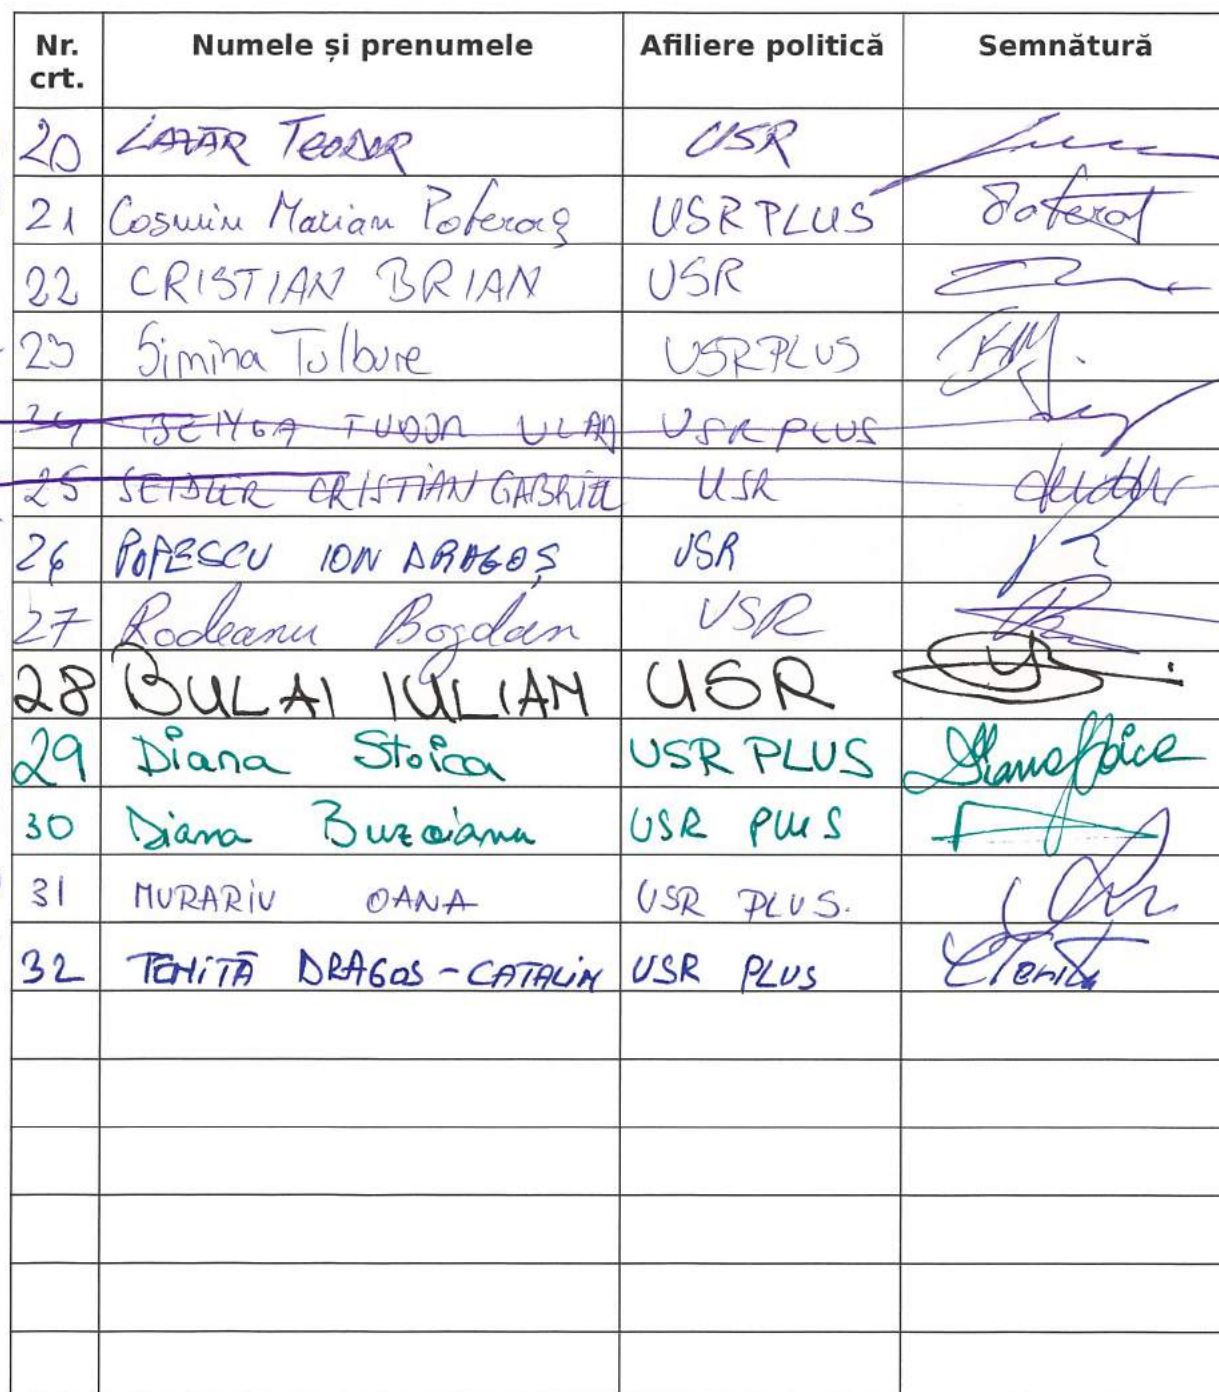 Nr. crt. Numele și prenumele Afiliere politică Semnătură
20 LAZĂR TEODOR USR
21 Cosmin Marian Poteraș USR PLUS Poteraș
22 CRISTIAN BRIAN USR
23 Simina Tulbure USR PLUS
24 TUDOR VLAD USR PLUS
25 SEIDLER CRISTIAN GABRIEL USR
26 POPESCU ION DRAGOȘ USR
27 Rodeanu Bogdan USR
28 BULAI IULIAN USR
29 Diana Stoica USR PLUS Diana Stoica
30 Diana Buzoianu USR PLUS
31 MURARIU OANA USR PLUS.
32 TENITĂ DRAGOS-CATALIN USR PLUS